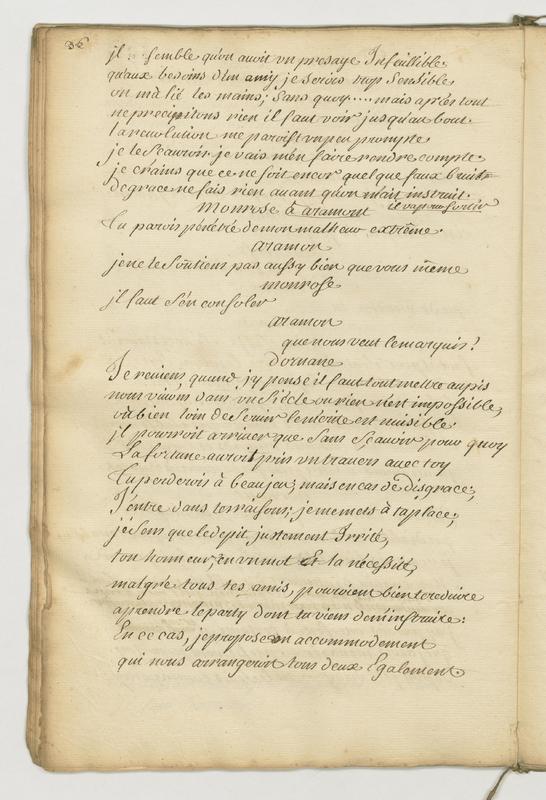 36
jl semble qu'on avoit vn presage Infaillible.
qu'aux besoins d'un amy je serois trop sensible,
on m'a lié les mains; sans quoy.... mais aprés tout
ne precipitons rien il faut voir jusqu'au bout.
la revolution me paroist vn peu prompte
je le sçauroir je vais m'en faire rendre compte.
je crains que ce ne soit encor quelque faux bruit
de grace ne fais rien avant qu'on m'ait instruit.
monrose à aramont il va pour sortir
tu parois penetré de mon malheur extrême.
aramon
je ne le soutiens pas aussy bien que vous même
monrose
jl faut s'en consoler
aramon
que nous veut le marquis?
dornane
Je reviens, quand j'y pense il faut tout mettre au pis
nous vivons dans vn siécle ou rien n'est impossible,
où bien loin de servir le merite est nuisible
jl pourroit arriver que sans sçavoir pour quoy
La fortune auroit pris vn travers avec toy
tu perderois à beau jeu; mais en cas de disgrace;
J'entre dans tes raisons; je me mets à ta place;
je sens que le depit, justement Irrité,
ton honneur, en vn mot Et la nécessité,
malgré tous tes amis, pouroient bien te reduire
a prendre le party dont tu viens de m'instruire:
En ce cas, je propose vn accommodement
qui nous arrangeroit tous deux Egalement.